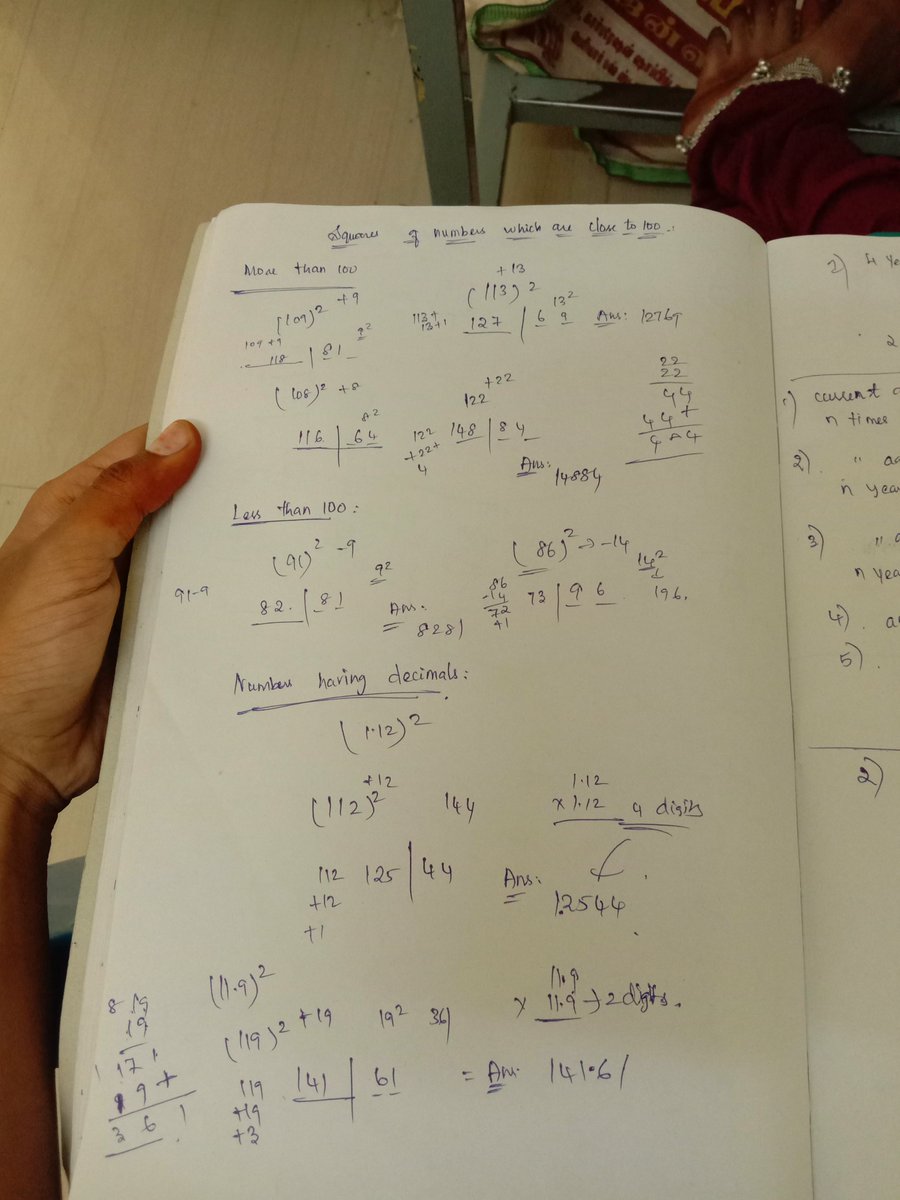 Squares of numbers which are close to 100.:
More than 100
(109)² +9
109 +9
9²
118 | 81
+13
(113)²
13²
113+
13+1
127 | 69 Ans: 12769
(108)² +8
8²
116 | 64
+22
122
122
+22+
4
148 | 84
Ans:
14884
22
22
44
44+
484
Less than 100:
(91)² -9
9²
91-9
82. | 81
Ans.
8281
(86)² → -14
14²
86
-14
72
+1
73 | 96. 196.
Numbers having decimals:
(1.12)²
+12
(112)² 144
1.12
x 1.12 4 digits
112 125 | 44
+12
+1
Ans:
1.2544
(11.9)²
(119)² +19 19² 361
11.9
x 11.9 → 2 digits.
8 19
19
171
19+
361
119 141 | 61 = Ans. 141.61
+19
+3
2) 4 Ye
2
1) current a
n times
2). " ag
n year
3) " a
n yea
4). a
5).
2)